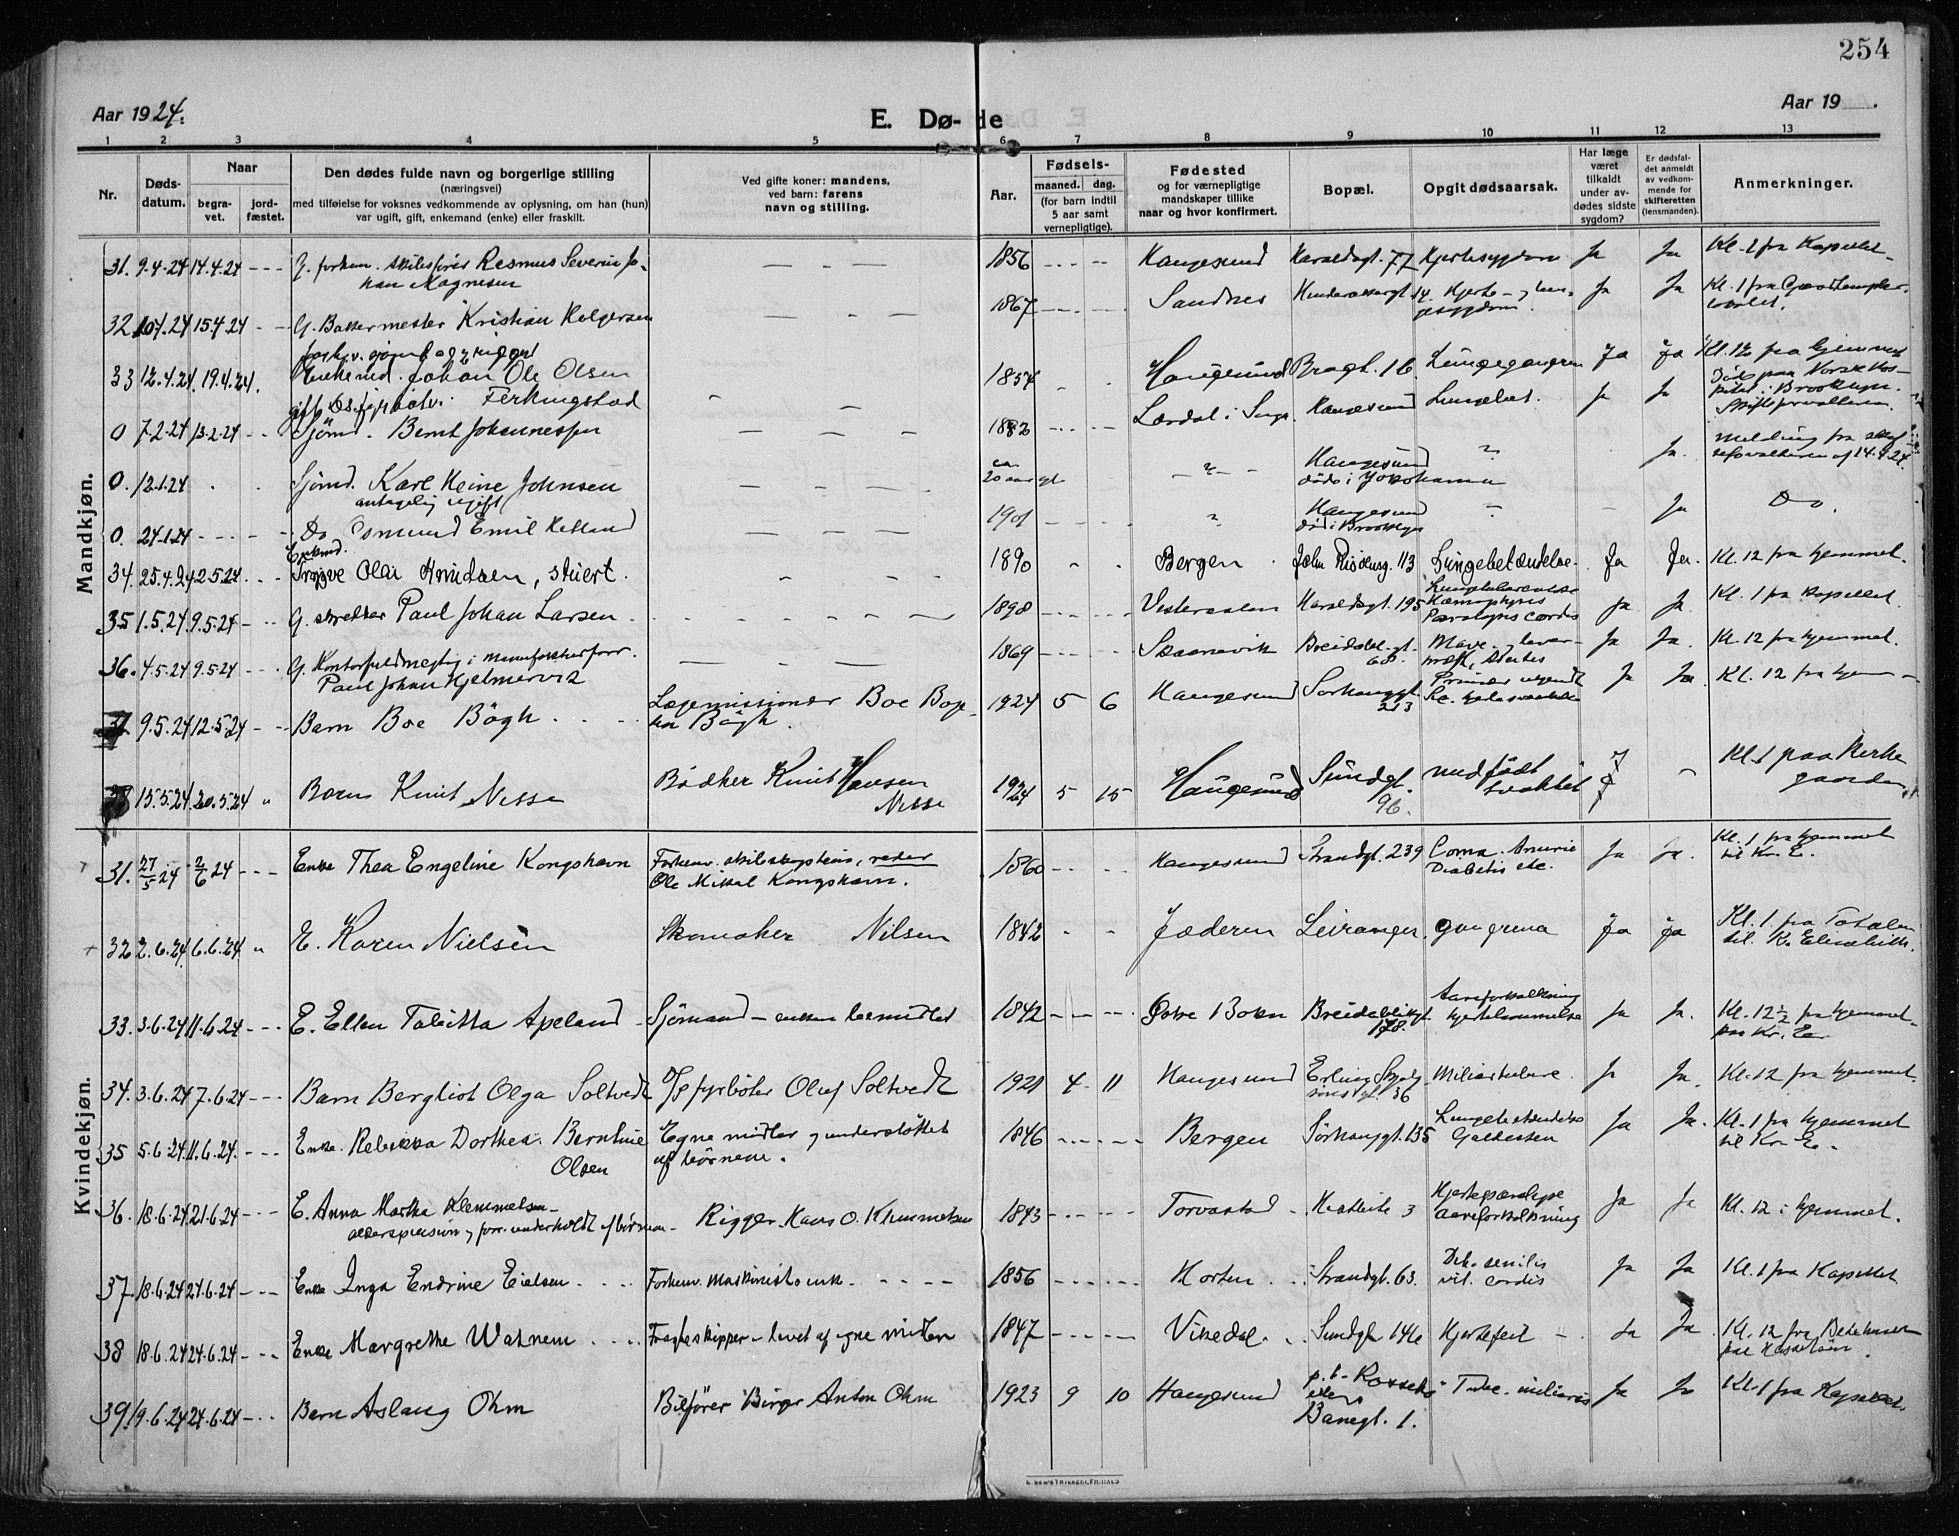 254
Aar 1924.
E. Dø-de
Aar 19
1 2 3 4 5 6 7 8 9 10 11 12 13
Nr.
Døds-datum.
Naar
begra-vet.
jord-fæstet.
Den dødes fulde navn og borgerlige stilling
(næringsvei)
med tilføielse for voksnes vedkommende av oplysning, om han (hun)
var ugift, gift, enkemand (enke) eller fraskilt.
Ved gifte koner: mandens,
ved barn: farens
navn og stilling.
Aar.
Fødsels-
maaned. dag.
(for barn indtil
5 aar samt
vernepligtige).
Fødested
og for værnepligtige
mandskaper tillike
naar og hvor konfirmert.
Bopæl.
Opgit dødsaarsak.
Har læge
været
tilkaldt
under av-
dødes sidste
sygdom?
Er dødsfal-
det anmeldt
av vedkom-
mende for
skifteretten
(lensmanden).
Anmerkninger.
Mandkjøn.
31. 9.4.24 14.4.24 --- G. forhen. skibsfører Rasmus Severin Jo-
han Magnesen — — — 1856 Haugesund Haraldsgt. 77 Hjertesygdom Ja Ja Kl. 1 fra Kapellet
32 10.4.24 15.4.24 -- G. Bakermester Kristian Helgersen — — 1867 Sandnes 14. Hjerte- Ja Ja Kl. 1 fra Goodtemplar-
lokalet.
33 12.4.24. 19.4.24. forhv. sjømd. og rigger
Enkemd. Johan Ole Olsen
Ferkingstad 1854 Haugesund Bragt. 16 Lungegangren Ja Ja Kl. 12 fra hjemmet
0 7.2.24 13.2.24 -- gift
Sjømd. Bernt Johannessen — — — 1882 Lærdal i Sogn Haugesund Ja Ja Døde paa Norske Hos-
pital i Brooklyn.
Skifteforvalteren.
0. 12.1.24 Sjømd. Karl Heine Johnsen
antagelig ugift — — — ca
20 aar gl - " - Haugesund
døde i Yokohama " Ja. Melding fra skif-
teforvalteren af 14.4.24.
0. 24.1.24 --- Do Osmund Emil Helland — — — 1901 " Haugesund
død i Brooklyn - - Ja Do.
34. 25.4.24 2.5.24 Enkemd.
Trygve Olai Amundsen, stuert. 1890 Bergen John Risöensg. 113 Lungebetændelse. Ja Ja. Kl. 12 fra hjemmet.
35 1.5.24 9.5.24 -- G. skredder Paul Johan Larsen 1898 Vesteraalen Haraldsgt. 195 Lungetuberculose
Hæmoptysis
Paralysis cordis Ja Ja Kl. 1 fra kapellet.
36. 4.5.24 9.5.24 -- G. Kontorfuldmegtig i
Paul Johan Hjelmervik — — — 1869 Skaanevik Breidabl.gt.
68. Mave- lever-
kræft, Ascites Ja Ja. Kl. 12 fra hjemmet.
37 9.5.24 12.5.24 -- Barn Boe Bögh Lægemissionær Boe
Bögh. 1924 5 6 Haugesund Sørhauggt.
213 Ja Ja Kl. 12 fra hjem-
38 15.5.24. 20.5.24 " Barn Knut Nesse Bødker Knut Hansen
Nesse 1924 5 15 Haugesund Sundgt.
96. medfödt
svakhet - Kl. 1 paa Kirke
gaarden
Kvindekjøn.
31. 27/5 24 2/6 24 --- Enke Thea Engeline Kongshavn Forhenv. skibskaptein, reder
Ole Mikal Kongshavn. 1860 Haugesund Strandgt. 239 Coma. Anurie
Diabetes etc. Ja Ja. Kl. 1 fra hjemmet
til Kr. E.
32 2.6.24. 6.6.24 " E. Karen Nielsen Skomaker Nilsen 1842 Jæderen Leiranger. gangrena Ja Ja Kl. 1 fra Totalen
til K. Elisabeth.
33. 3.6.24 11.6.24 --- E. Ellen Tabitta Apeland Sjömand - enken bemidlet 1842 Østre Bokn Breidablikgt.
178. Aareforkalkning
hjertelammelse Ja Ja. Kl. 12½ fra hjemmet
paa Kr. E.
34. 3.6.24 7.6.24 --- Barn Bergliot Olga Soltvedt D/S fyrböter Oluf Soltvedt 1921 4 11 Haugesund Erling Skjalg-
sönsgt. 36 Miliærtuberc. Ja Ja. Kl. 12 fra hjemmet.
35 5.6.24 11.6.24. --- Enke. Rebekka Dorthea Berntine
Olsen Egne midler og understöttet
af börnene. 1846 Bergen Sörhauggt. 135 Lungebetændelse
Galdesten Ja Ja. Kl. 1 fra hjemmet
til Kr. E.
36. 18.6.24 21.6.24 --- E. Anna Marta Klemmetsen
alderspension, forr. underholdt af börnene Rigger Hans O. Klemmetsen 1843 Torvastad 3 Hjerteparalyse
Aareforkalkning Ja Ja Kl. 12 i hjemmet.
37. 18.6.24 24.6.24 --- Enke Inga Endrine Eielsen Forhenv. Maskinist enke 1856 Horten Strandgt. 63. Deb. senilis
vit. cordis Ja Ja Kl. 1 fra Kapellet
38 18.6.24 24.6.24 --- Enke Margrethe Watnem Fragteskipper - levet af egne midler 1847 Vikedal Sundgt. 146 Hjertefeil Ja Ja Kl. 12 fra Bedehuset
paa Hasseløen.
39 19.6.24 24.6.24 --- Barn Aslaug Ohm Bilfører Birger Anton Ohm 1923 9 10 Haugesund
Banegt. 1. Tube. miliaris Ja Ja Kl. 1 fra Kapellet.